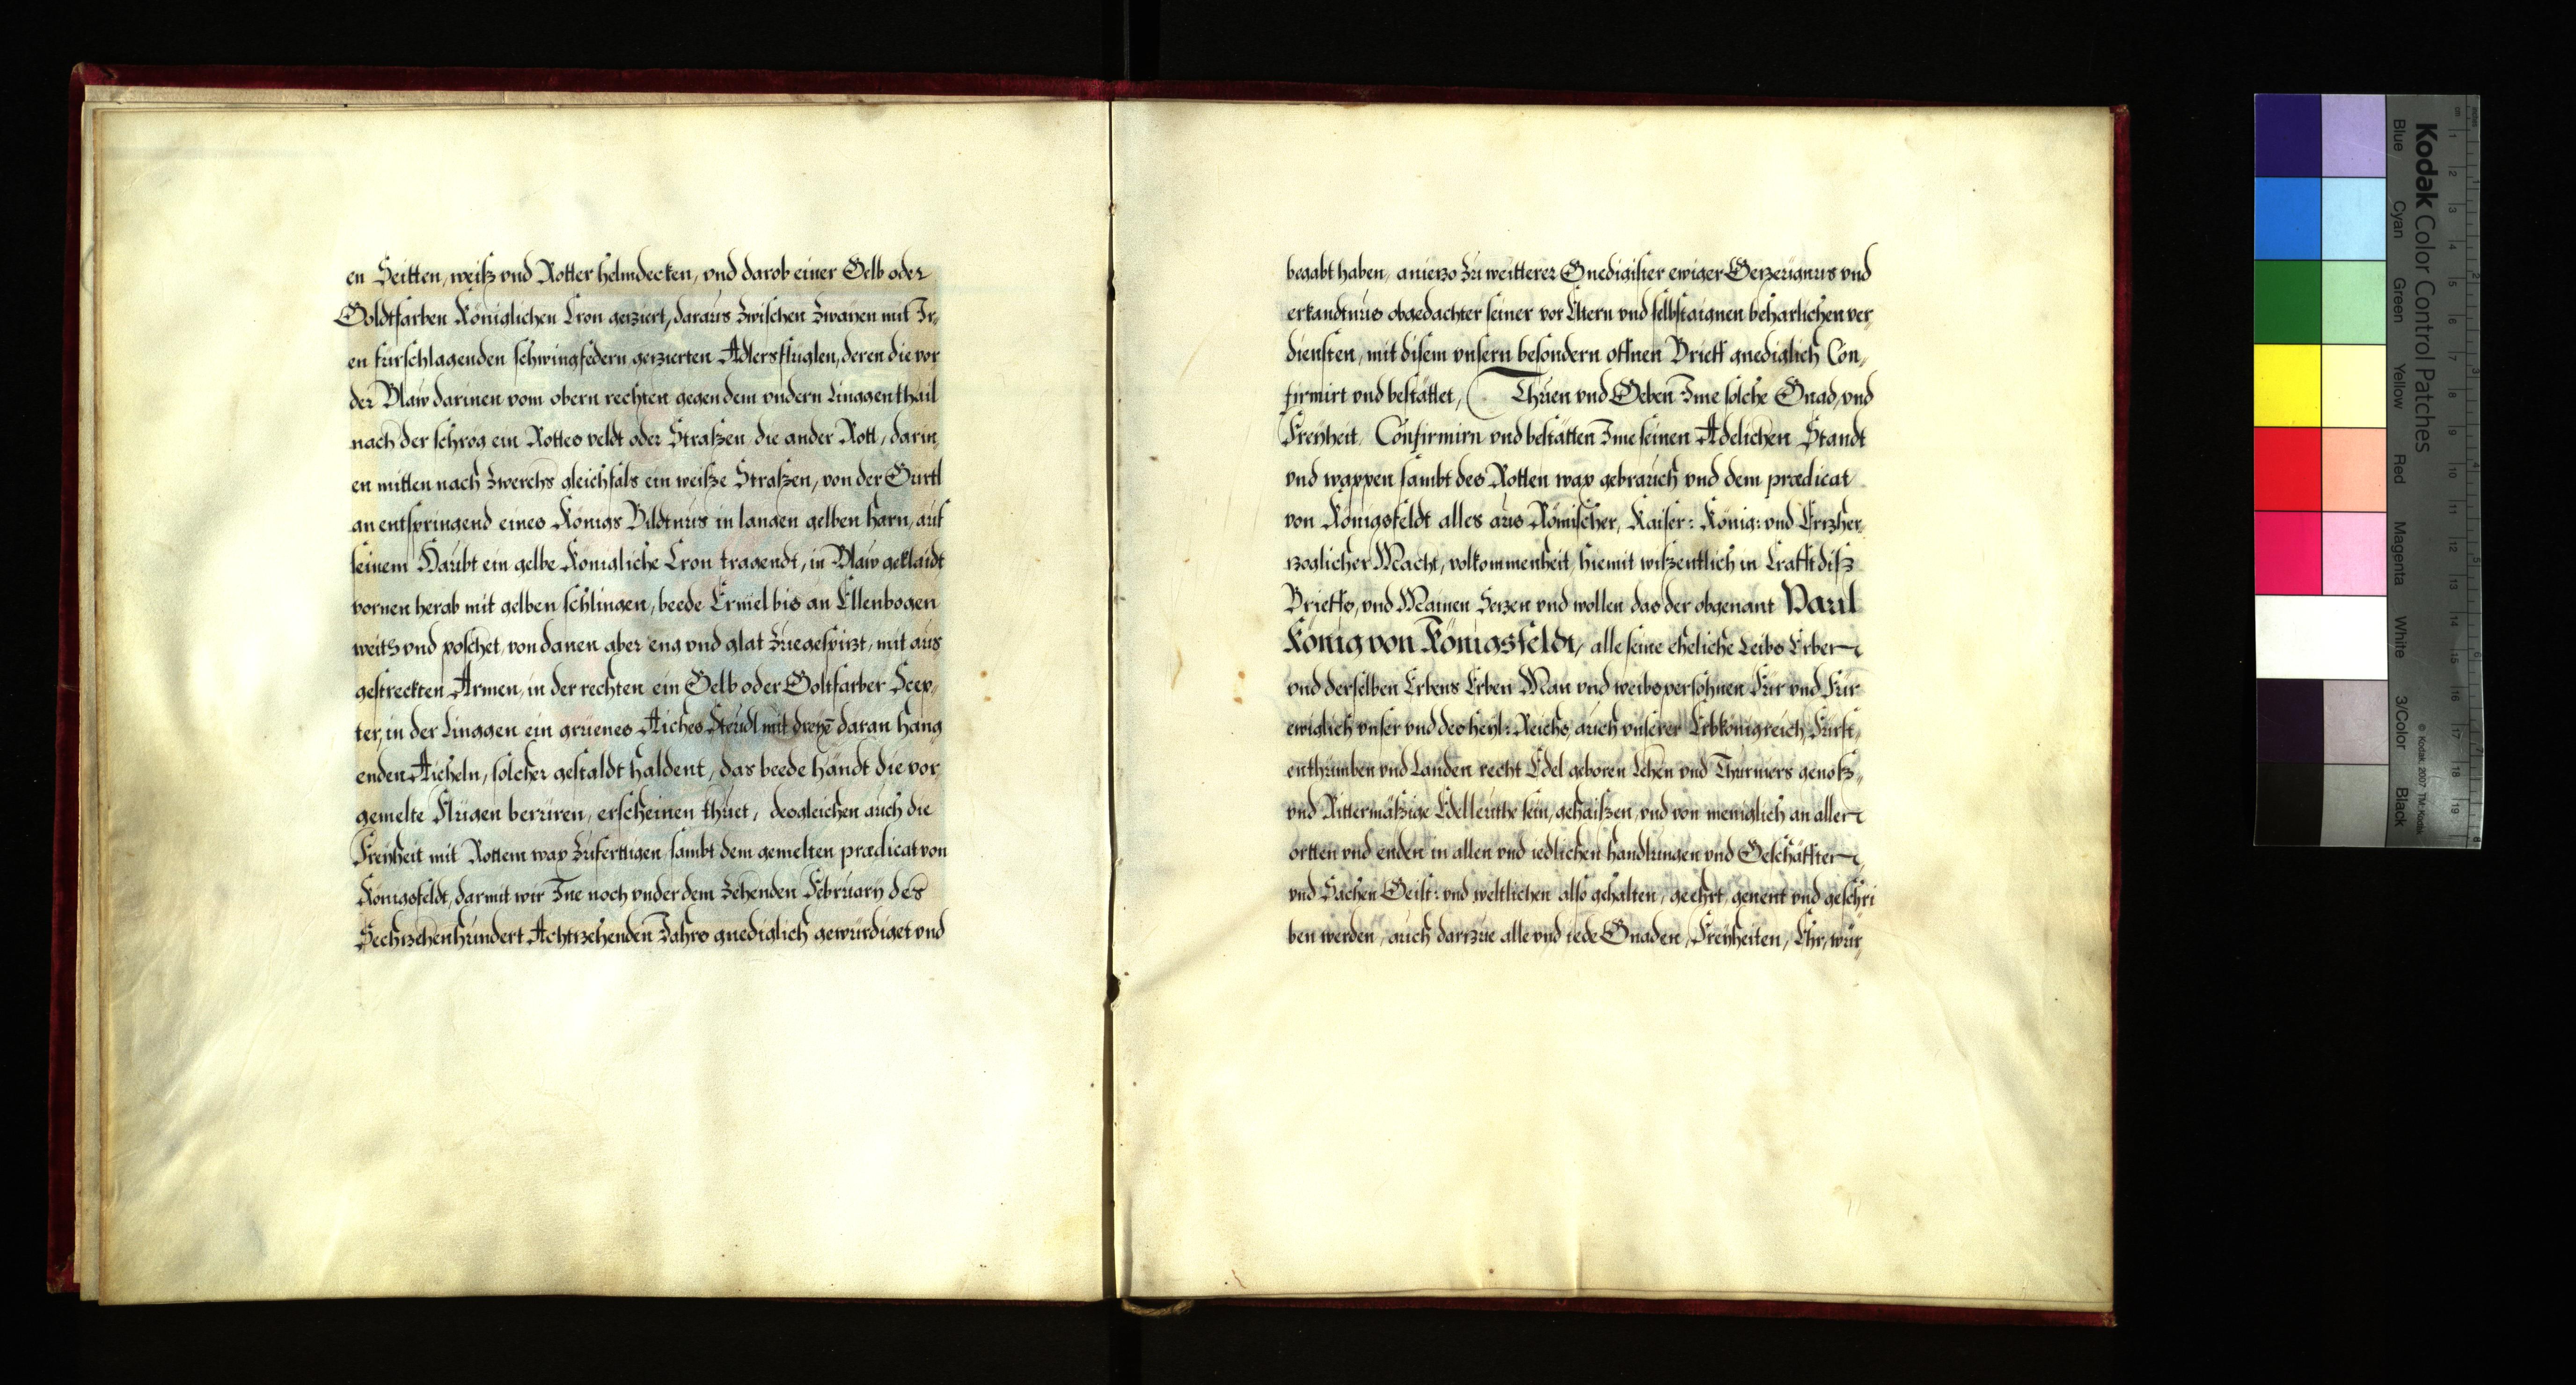 en Seitten, weiß vnd Rotter helmdecken, vnd darob einer Gelb oder
Goldtfarben Königlichen Cron geziert, daraus zwischen zwayen mit Ir„
en fürschlagenden schwingfedern gezierten Adlersfluglen, deren die vor
der Blaw darinen vom obern rechten gegen dem vndern Linggenthail
nach der schreg ein Rottes veldt oder Straßen die ander Rott, darin„
en mitten nach zwerchs gleichfals ein weiße Straßen, von der Gürtl
an entspringend eines Königs Bildtnus in langen gelben harn, auf
seinem Haubt ein gelbe Königliche Cron tragendt, in Blaw geklaidt
vornen herab mit gelben schlingen, beede Ermel bis an Ellenbogen
weith vnd poschet, von danen aber eng vnd glat zuegespizt, mit aus
gestreckten Armen, in der rechten ein Gelb oder Goltfarber Scep„
ter, in der Linggen ein grüenes Aiches Steudl mit dreyē daran hang
enden Aicheln, solcher gestaldt haldent, das beede händt die vor
gemelte Flügen berüren, erscheinen thuet, desgleichen auch die
Freyheit mit Rottem wax zuferttigen, sambt dem gemelten prædicat von
Königsfeldt, darmit wir Ine noch vnder dem zehenden February des
Sechzehenhundert Achtzehenden Jahrs gnediglich gewürdiget vnd
begabt haben, aniezo zu weitterer Gnedigister ewiger Gezeugnus vnd
erkandtnus obgedachter seiner vor Eltern vnd selbstaignen beharlichen ver„
diensten, mit disem vnsern besondern offnen Brieff gnediglich Con„
firmirt vnd bestättet, Thuen vnd Geben Ime solche Gnad, vnd
Freyheit, Confirmirn vnd bestätten Ime seinen Adelichen Standt
vnd wappen sambt des Rotten wax gebrauch vnd dem prædicat
von Königsfeldt alles aus Römischer, Kaiser: König: vnd Erzher„
zoglicher Macht, volkommenheit, hiemit wißentlich in Crafft diß
Brieffs, vnd Mainen Sezen vnd wollen das der obgenant Paul
König von Königsfeldt, alle seine eheliche Leibs Erben
vnd derselben Erbens Erben Man vnd weibspersohnen Für vnd Für
ewiglich vnser vnd des heyl: Reichs, auch vnserer Erbkönigreich, Fürst„
enthumben vnd Landen recht Edel geboren Lehen vnd Thurniers genoß„
vnd Rittermäßige Edelleuthe sein, gehaißen, vnd von meniglich an allen
ortten vnd enden in allen vnd iedlichen handlungen vnd Geschäfften,
vnd Sachen Geist: vnd weltlichen also gehalten, geehrt, genent vnd geschri
ben werden, auch darzue alle vnd iede Gnaden, Freyheiten, Ehr, wür„
Kodak Color Control Patches
Blue Cyan Green Yellow Red Magenta White 3/Color Black
© Kodak, 2007 TM: Kodak